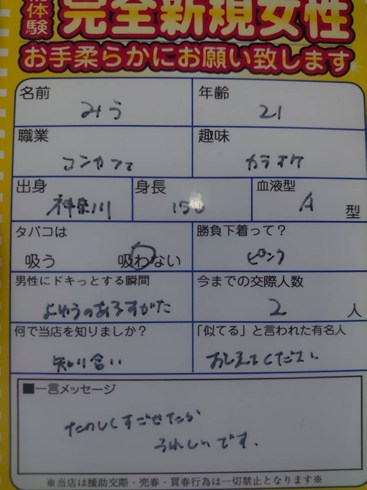 体験
完全新規女性
お手柔らかにお願い致します
名前 みう
年齢 21
職業 コンカフェ
趣味 カラオケ
出身 神奈川
身長 150
血液型 A 型
タバコは
吸う 吸わない
勝負下着って？
ピンク
男性にドキっとする瞬間
よゆうのあるすがた
今までの交際人数
2 人
何で当店を知りましたか？
知り合い
「似てる」と言われた有名人
おしえてください
■一言メッセージ
たのしくすごせたら
うれしいです。
※当店は援助交際・売春・買春行為は一切禁止となります※